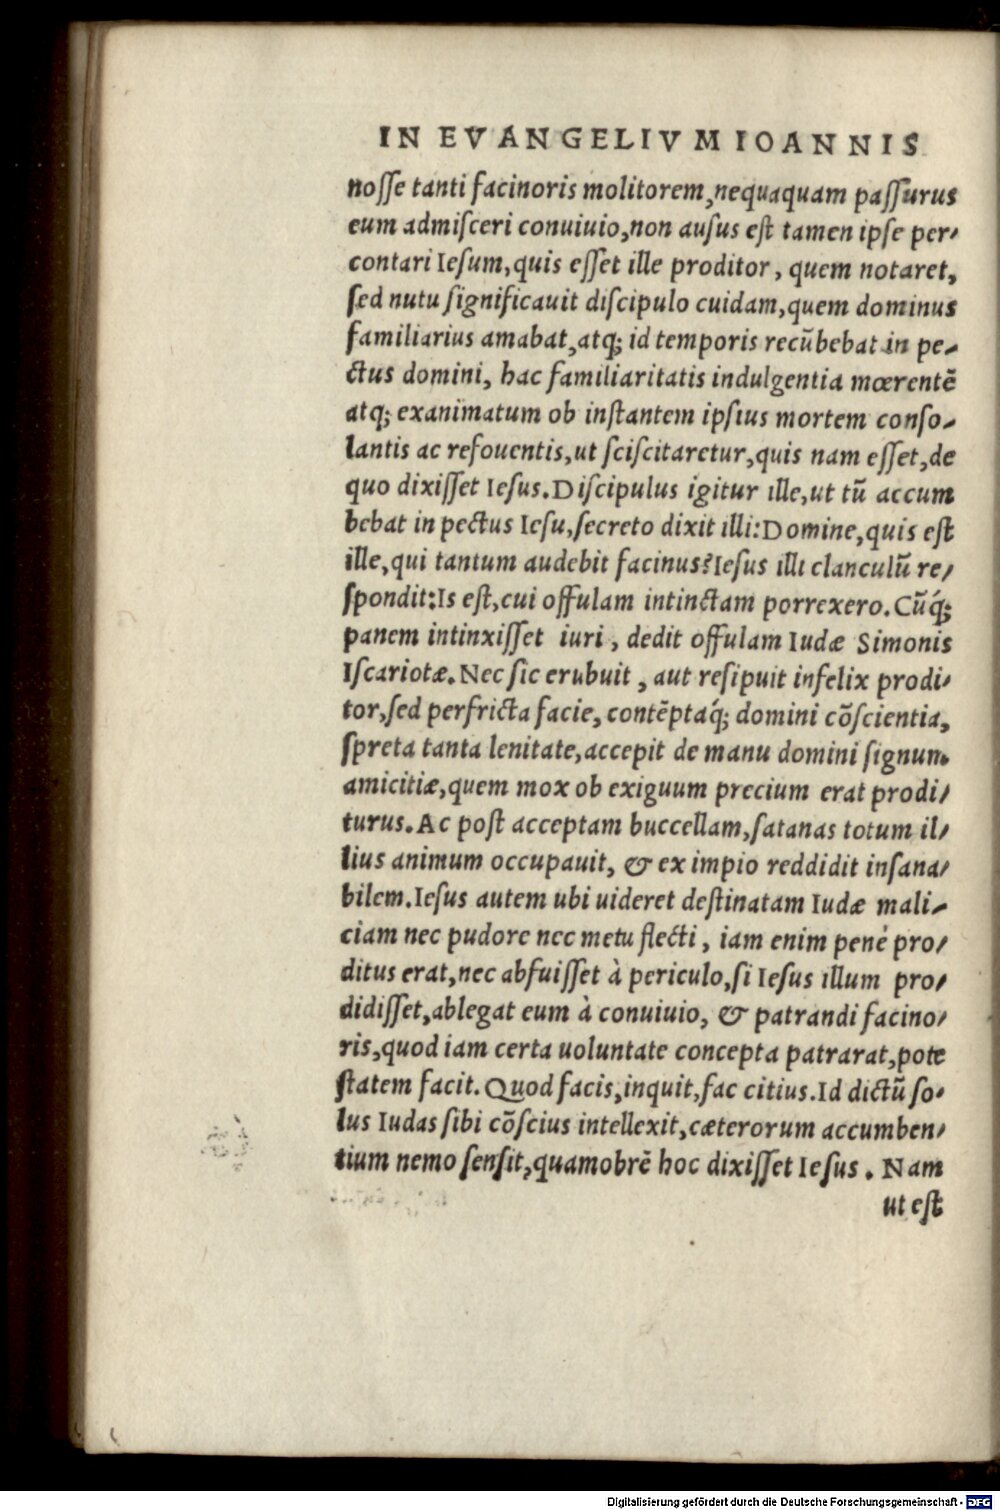 IN EVANGELIVM IOANNIS
noſſe tanti facinoris molitorem, nequaquam paſſurus
eum admiſceri conuiuio, non auſus eſt tamen ipſe per/
contari Ieſum, quis eſſet ille proditor, quem notaret,
ſed nutu ſignificauit diſcipulo cuidam, quem dominus
familiarius amabat, atq; id temporis recũbebat in pe/
ctus domini, hac familiaritatis indulgentia mœrentẽ
atq; exanimatum ob inſtantem ipſius mortem conſo/
lantis ac refouentis, ut ſciſcitaretur, quis nam eſſet, de
quo dixiſſet Ieſus. Diſcipulus igitur ille, ut tũ accum
bebat in pectus Ieſu, ſecreto dixit illi: Domine, quis eſt
ille, qui tantum audebit facinus? Ieſus illi clanculũ re/
ſpondit: Is eſt, cui offulam intinctam porrexero. Cũq́;
panem intinxiſſet iuri, dedit offulam Iudæ Simonis
Iſcariotæ. Nec ſic erubuit, aut reſipuit infelix prodi/
tor, ſed perfricta facie, contẽptaq́; domini cõſcientia,
ſpreta tanta lenitate, accepit de manu domini ſignum
amicitiæ, quem mox ob exiguum precium erat prodi/
turus. Ac poſt acceptam buccellam, ſatanas totum il/
lius animum occupauit, & ex impio reddidit inſana/
bilem. Ieſus autem ubi uideret deſtinatam Iudæ mali/
ciam nec pudore nec metu flecti, iam enim penè pro/
ditus erat, nec abfuiſſet à periculo, ſi Ieſus illum pro/
didiſſet, ablegat eum à conuiuio, & patrandi facino/
ris, quod iam certa uoluntate concepta patrarat, pote
ſtatem facit. Quod facis, inquit, fac citius. Id dictũ ſo/
lus Iudas ſibi cõſcius intellexit, cæterorum accumben/
tium nemo ſenſit, quamobrẽ hoc dixiſſet Ieſus. Nam
ut eſt
Digitalisierung gefördert durch die Deutsche Forschungsgemeinschaft - DFG